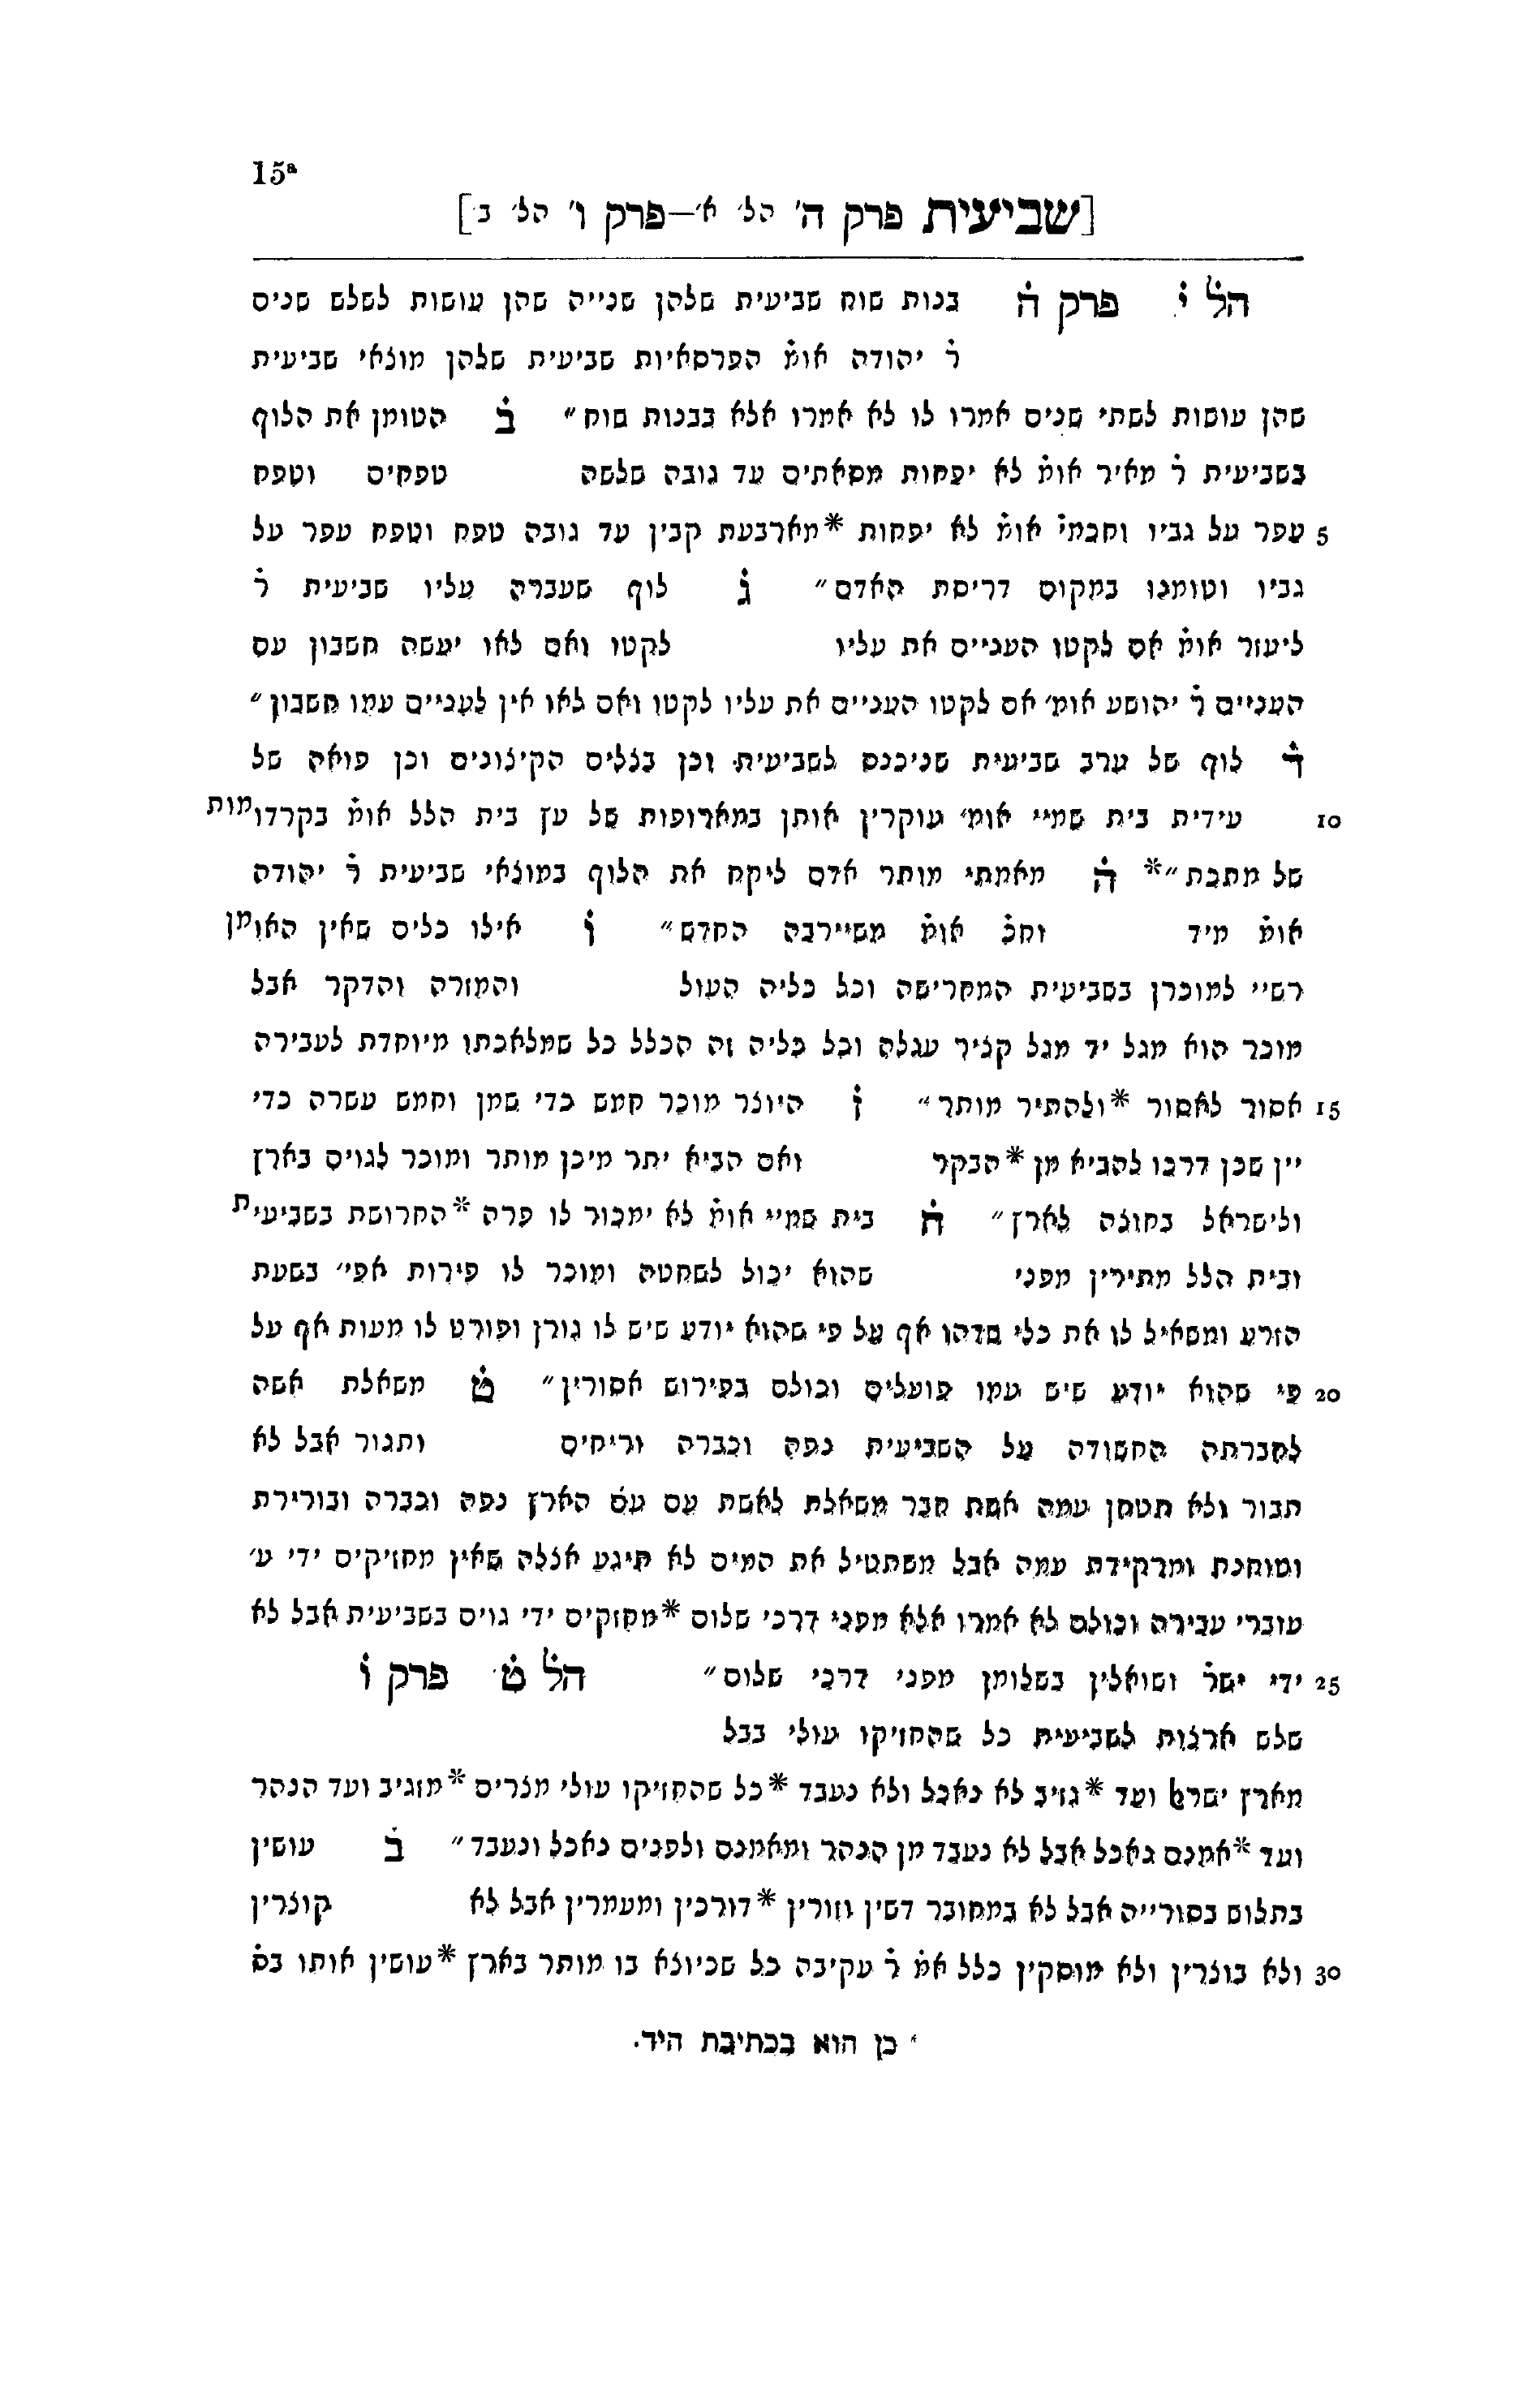 15ª
[שביעית פרק ה' הל' א'—פרק ו' הל' ב']
הל י פרק ה בנות שוח שביעית שלהן שנייה שהן עושות לשלש שנים
ר יהודה אומ הפרסאיות שביעית שלהן מוצאי שביעית
שהן עושות לשתי שנים אמרו לו לא אמרו אלא בבנות שוח" ב הטומן את הלוף
בשביעית ר מאיר אומ לא יפחות מסאתים עד גובה שלשה טפחים וטפח
5 עפר על גביו וחכמי אומ לא יפחות *מארבעת קבין עד גובה טפח וטפח עפר על
גביו וטומנו במקום דריסת האדם" ג לוף שעברה עליו שביעית ר
ליעזר אומ אם לקטו העניים את עליו לקטו ואם לאו יעשה חשבון עם
העניים ר יהושע אומ' אם לקטו העניים את עליו לקטו ואם לאו אין לעניים עמו חשבון"
ד לוף של ערב שביעית שניכנס לשביעית וכן בצלים הקיצונים וכן פואה של
10 עידית בית שמיי אומ' עוקרין אותן במארופות של עץ בית הלל אומ בקרדומות
של מתכת"* ה מאמתי מותר אדם ליקח את הלוף במוצאי שביעית ר יהודה
אומ מיד וחכ אומ משיירבה החדש" ו אילו כלים שאין האומן
רשיי למוכרן בשביעית המחרישה וכל כליה העול והמזרה והדקר אבל
מוכר הוא מגל יד מגל קציר עגלה וכל כליה זה הכלל כל שמלאכתו מיוחדת לעבירה
15 אסור לאסור *ולהתיר מותר" ז היוצר מוכר חמש כדי שמן וחמש עשרה כדי
יין שכן דרכו להביא מן *הבקר ואם הביא יתר מיכן מותר ומוכר לגוים בארץ
ולישראל בחוצה לארץ" ח בית שמיי אומ לא ימכור לו פרה *החרושת בשביעית
ובית הלל מתירין מפני שהוא יכול לשחטה ומוכר לו פירות אפי' בשעת
הזרע ומשאיל לו את כלי מדהו אף על פי שהוא יודע שיש לו גורן ופורט לו מעות אף על
20 פי שהוא יודע שיש עמו פועלים וכולם בפירוש אסורין" ט משאלת אשה
לחברתה החשודה על השביעית נפה וכברה וריחים ותנור אבל לא
תבור ולא תטחן עמה אשת חבר משאלת לאשת עם עם הארץ נפה וכברה ובורירת
וטוחנת ומרקידת עמה אבל משתטיל את המים לא תיגע אצלה שאין מחזיקים ידי ע'
עוברי עבירה וכולם לא אמרו אלא מפני דרכי שלום *מחזקים ידי גוים בשביעית אבל לא
25 ידי ישר ושואלין בשלומן מפני דרכי שלום" הל ט פרק ו
שלש ארצות לשביעית כל שהחזיקו עולי בבל
מארץ ישרא ועד *גזיב לא נאכל ולא נעבד *כל שהחזיקו עולי מצרים *מזגיב ועד הנהר
ועד *אמנם נאכל אבל לא נעבד מן הנהר ומאמנם ולפנים נאכל ונעבד" ב עושין
בתלוש בסורייה אבל לא במחובר דשין וזורין *דורכין ומעמרין אבל לא קוצרין
30 ולא בוצרין ולא מוסקין כלל אמ ר עקיבה כל שכיוצא בו מותר בארץ *עושין אותו בס
' כן הוא בכתיבת היד.